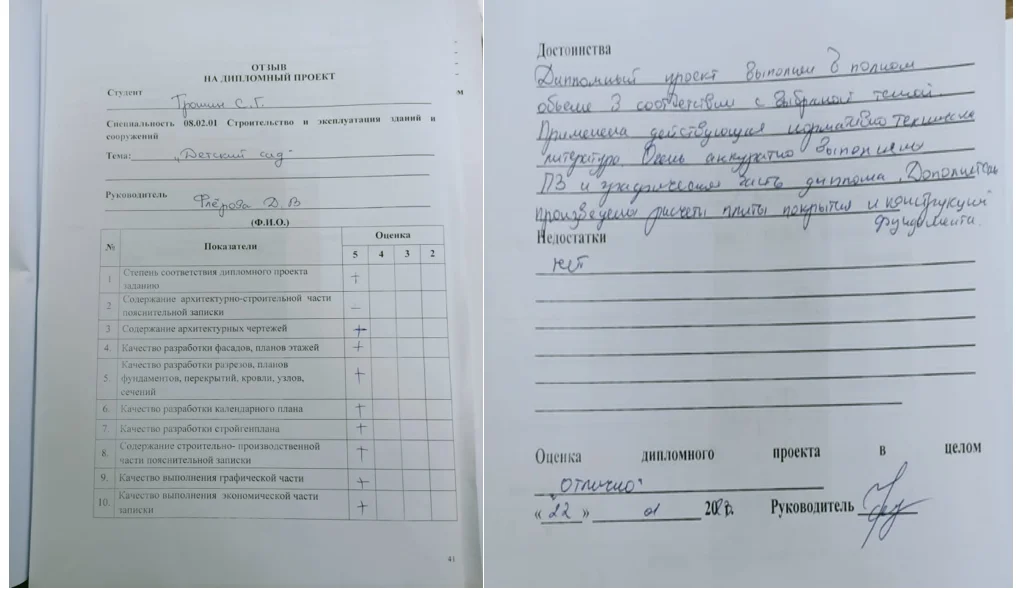 ОТЗЫВ
НА ДИПЛОМНЫЙ ПРОЕКТ
Студент
Трошин С.Г.
Специальность 08.02.01 Строительство и эксплуатация зданий и
сооружений
Тема: „Детский сад"
Руководитель
Флёрова Д. В
(Ф.И.О.)
№ Показатели Оценка
5 4 3 2
1 Степень соответствия дипломного проекта
заданию +
2 Содержание архитектурно-строительной части
пояснительной записки –
3 Содержание архитектурных чертежей +
4. Качество разработки фасадов, планов этажей +
5. Качество разработки разрезов, планов
фундаментов, перекрытий, кровли, узлов,
сечений +
6. Качество разработки календарного плана +
7. Качество разработки стройгенплана +
8. Содержание строительно- производственной
части пояснительной записки +
9. Качество выполнения графической части +
10. Качество выполнения экономической части
записки +
41
Достоинства
Дипломный проект выполнен в полном
объеме в соответствии с выбраной темой.
Применена действующая нормативно техническая
литература. Очень аккуратно выполнены
ПЗ и графическая часть диплома. Дополнительно
произведены расчеты плиты покрытия и конструкций
фундамента.
Недостатки
нет
Оценка дипломного проекта в целом
„отлично"
« 22 » 01 Руководитель